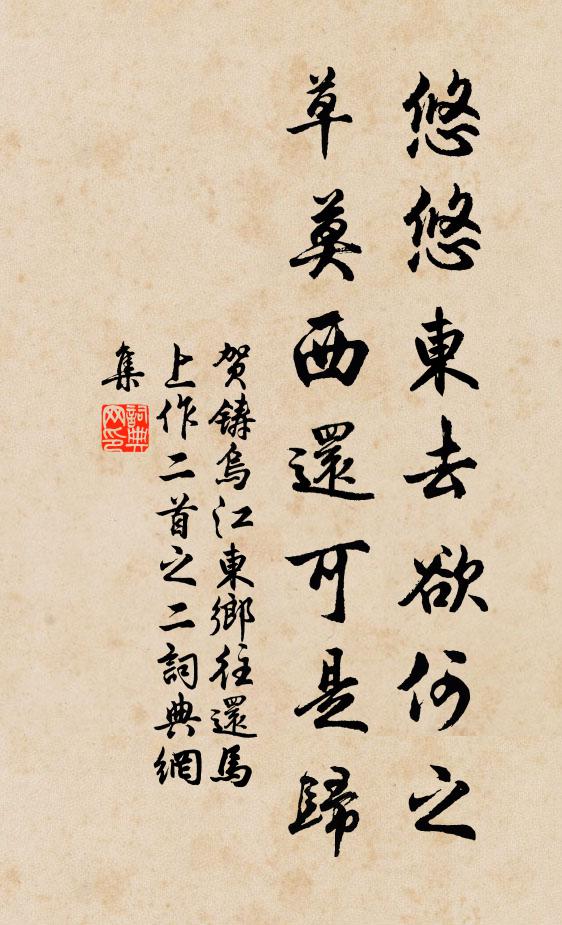 悠悠東去欲何之
草莫西還可是歸
賀鑄烏江東鄉往還馬
上作二首之二詞典網
集
詞典
网印